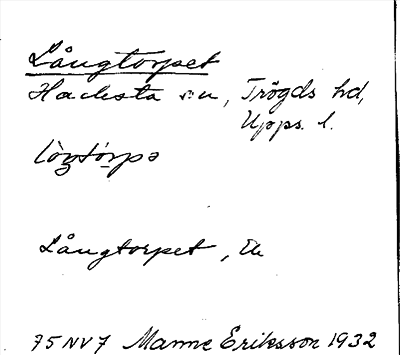 Långtorpet
Hacksta sn, Trögds hd,
Upps. l.
Långtorpet, Ek
75 NV 7 Manne Eriksson 1932